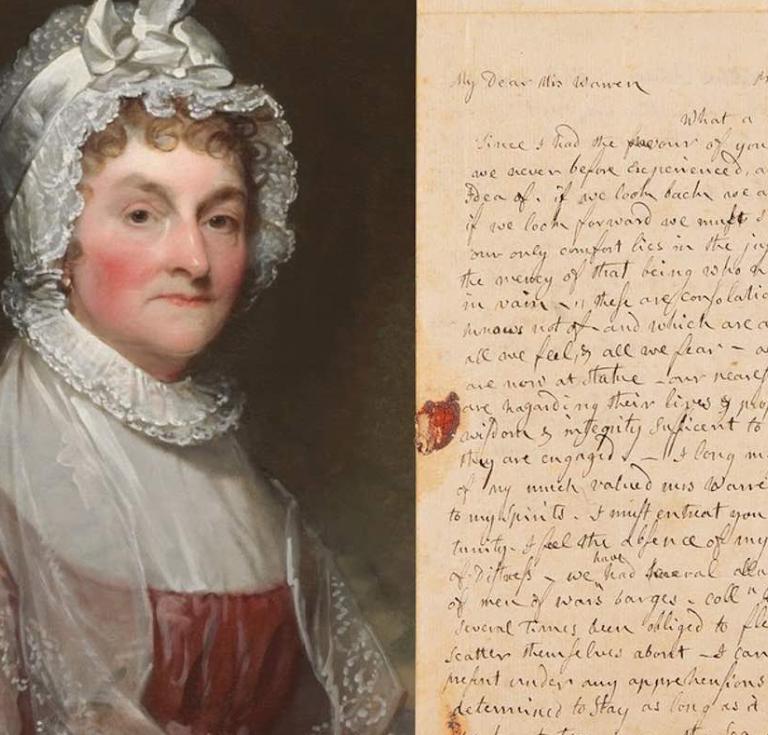 My Dear Mrs Warren
What a
Since I had the favour of you
we never before Experienced, a
Idea of. if we look back we a
if we look forward we must s
our only comfort lies in the
the mercy of that being who
in vain these are consolatio
knows not of and which are a
all we feel, & all we fear - a
are now at Stake - our nearest
are hazarding their lives &
wisdom & integrity sufficent to
they are engaged. - I long
of my much valued mrs Warre
to my Spirits. I must entreat you
tunity. I feel the absence of my
of Distress - we have had several alla
of men of wars barges - coll
Several times been obliged to fle
Scatter themselves about - I can
present under any apprehensions
determined to Stay as long as